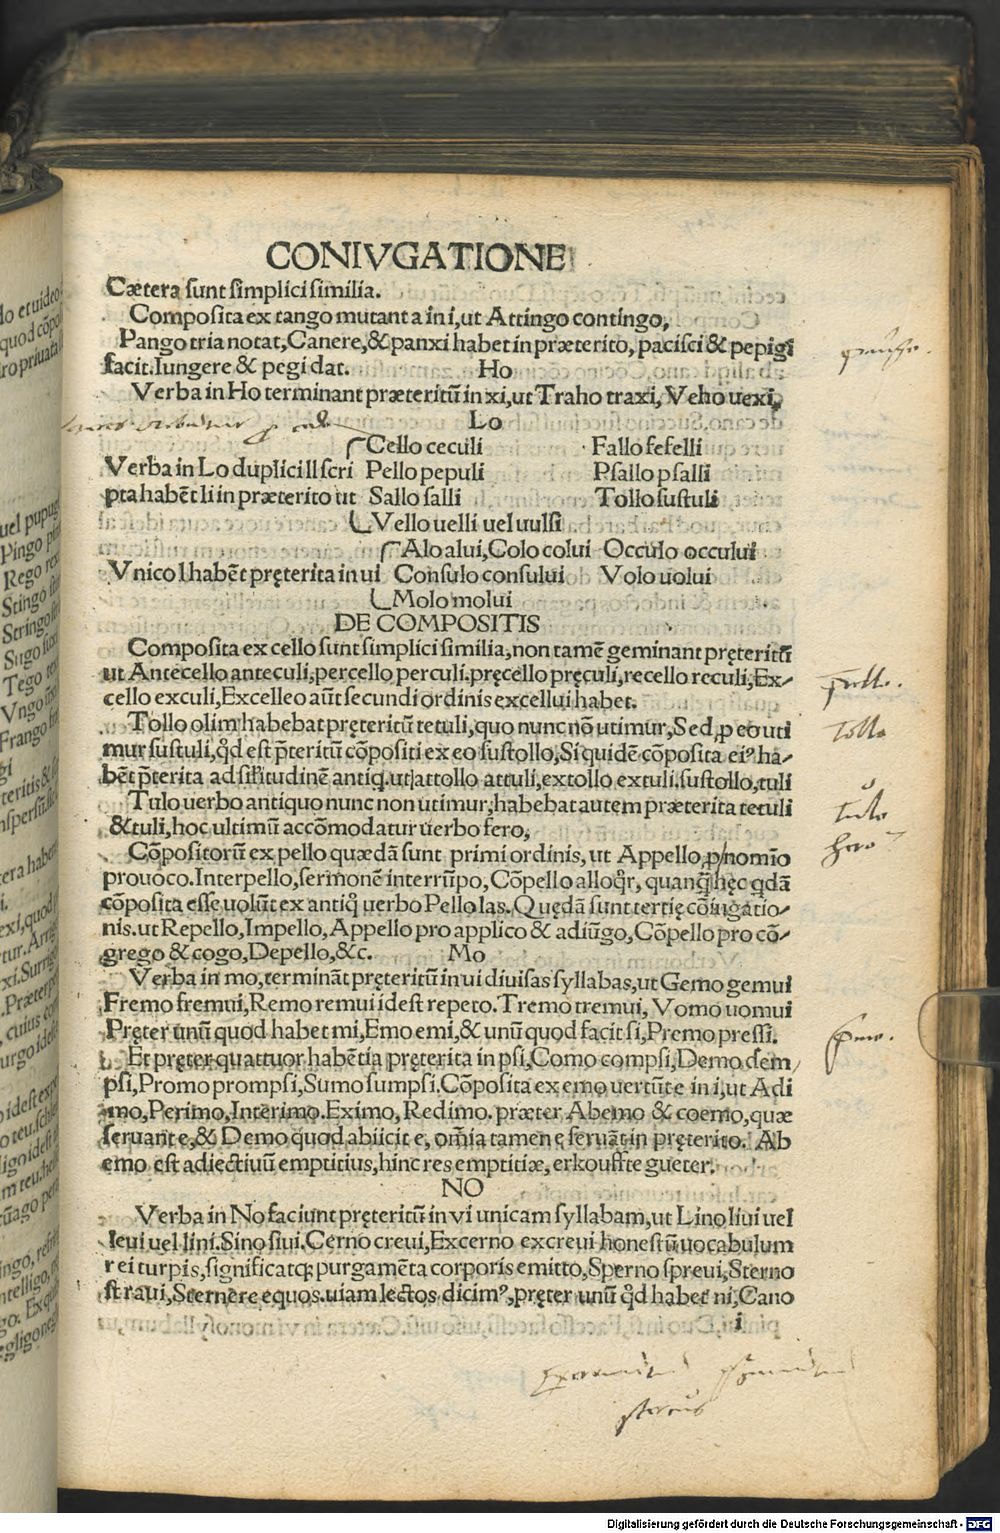 CONIVGATIONE
Cætera sunt simplici similia.
Composita ex tango mutant a in i, ut Attingo contingo,
Pango tria notat, Canere, & panxi habet in præterito, pacisci & pepigi
facit. Iungere & pegi dat. Ho
Verba in Ho terminant præteritū in xi, ut Traho traxi, Veho uexi,
Lo
Cello ceculi Fallo fefelli
Verba in Lo duplici ll scri Pello pepuli Psallo psalli
pta habēt li in præterito ut Sallo salli Tollo sustuli
Vello uelli uel uulsi
Alo alui, Colo colui Occulo occului
Vnico l habēt pręterita in ui Consulo consului Volo uolui
Molo molui
DE COMPOSITIS
Composita ex cello sunt simplici similia, non tamē geminant pręteritū
ut Antecello anteculi, percello perculi. pręcello pręculi, recello reculi, Ex-
cello exculi, Excelleo aūt secundi ordinis excellui habet.
Tollo olim habebat pręteritū tetuli, quo nunc nō utimur, Sed, ꝓ eo uti
mur sustuli, qd̄ est p̄teritū cōpositi ex eo sustollo, Si quidē cōposita eiꝰ ha-
bēt p̄terita ad sil̄itudinē antiq. ut attollo attuli, extollo extuli. sustollo, tuli
Tulo uerbo antiquo nunc non utimur, habebat autem præterita tetuli
& tuli, hoc ultimū accōmodatur uerbo fero,
Cōpositorū ex pello quædā sunt primi ordinis, ut Appello, p nomīo
prouoco. Interpello, sermonē interrūpo, Cōpello alloqr̄, quanq̄ hęc qdā
cōposita esse uolūt ex antiq̄ uerbo Pello las. Quędā sunt tertię cōiugatio-
nis. ut Repello, Impello, Appello pro applico & adiūgo, Cōpello pro cō-
grego & cogo, Depello, &c. Mo
Verba in mo, termināt pręteritū in ui diuisas syllabas, ut Gemo gemui
Fremo fremui, Remo remui idest repeto. Tremo tremui, Vomo uomui
Pręter unū quod habet mi, Emo emi, & unū quod facit si, Premo pressi.
Et pręter quattuor habētia pręterita in psi, Como compsi, Demo dem
psi, Promo prompsi, Sumo sumpsi. Cōposita ex emo uertūt e in i, ut Adi
mo, Perimo, Interimo. Eximo, Redimo. præter Abemo & coemo, quæ
seruant e, & Demo quod abiicit e, om̄ia tamen e seruāt in pręterito. Ab
emo est adiectiuū emptitius, hinc res emptitiæ, erkouffte gueter.
NO
Verba in No faciunt pręteritū in vi unicam syllabam, ut Lino liui uel
leui uel lini. Sino siui. Cerno creui, Excerno excreui honestū uocabulum
rei turpis, significatq; purgamēta corporis emitto, Sperno spreui, Sterno
straui, Sternere equos. uiam lectos dicimꝰ, pręter unū qd̄ habet ni, Cano
i
tollo
tulo
fero
stercus
Digitalisierung gefördert durch die Deutsche Forschungsgemeinschaft - DFG